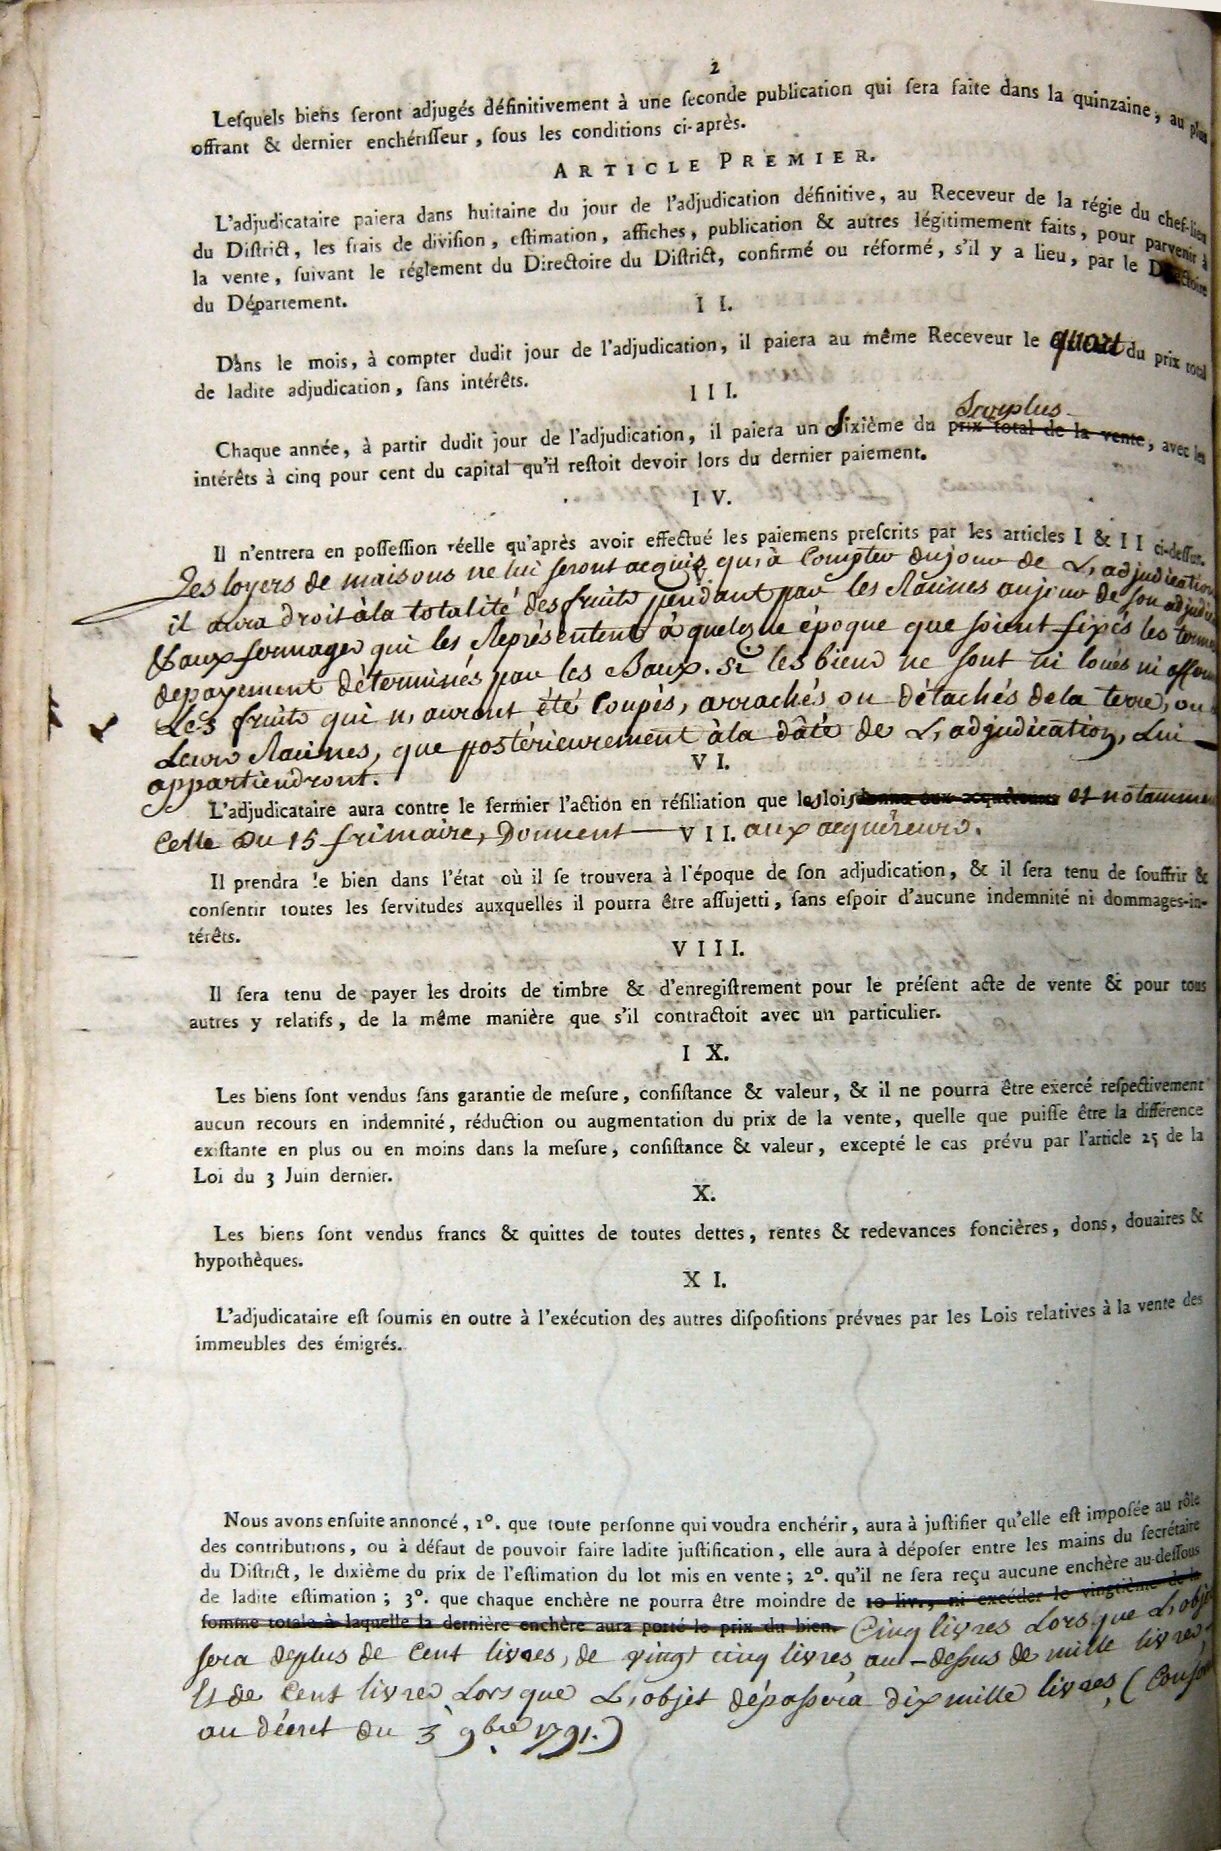 2
Lesquels biens seront adjugés définitivement à une seconde publication qui sera faite dans la quinzaine, au plus
offrant & dernier enchérisseur, sous les conditions ci-après.
ARTICLE PREMIER.
L'adjudicataire paiera dans huitaine du jour de l'adjudication définitive, au Receveur de la régie du chef-lieu
du District, les frais de division, estimation, affiches, publication & autres légitimement faits, pour parvenir à
la vente, suivant le réglement du Directoire du District, confirmé ou réformé, s'il y a lieu, par le Directoire
du Département.
II.
Dans le mois, à compter dudit jour de l'adjudication, il paiera au même Receveur le quart du prix total
de ladite adjudication, sans intérêts.
III.
Surplus
Chaque année, à partir dudit jour de l'adjudication, il paiera un sixième du prix total de la vente, avec les
intérêts à cinq pour cent du capital qu'il restoit devoir lors du dernier paiement.
IV.
Il n'entrera en possession réelle qu'après avoir effectué les paiemens prescrits par les articles I & II ci-dessus.
Les loyers de maisons ne lui seront acquis qu'à compter du jour de L'adjudication
V.
il aura droit à la totalité des fruits pendant par les Racines au jour de son adjudic
& aux fermages qui les Représentent à quelque époque que soient fixés les termes
de payement déterminés par les Baux. si les biens ne sont ni loués ni afferm
Les fruits qui n'auront été Coupés, arrachés ou détachés de la terre, ou
Leurs Racines, que postérieurement à la date de L'adjudication, Lui
appartiendront.
VI.
L'adjudicataire aura contre le fermier l'action en résiliation que les lois donne aux acquéreurs et notamment
Celle du 15 frimaire, Donnent VII. aux acquéreurs.
Il prendra le bien dans l'état où il se trouvera à l'époque de son adjudication, & il sera tenu de souffrir &
consentir toutes les servitudes auxquelles il pourra être assujetti, sans espoir d'aucune indemnité ni dommages-in-
térêts.
VIII.
Il sera tenu de payer les droits de timbre & d'enregistrement pour le présent acte de vente & pour tous
autres y relatifs, de la même manière que s'il contractoit avec un particulier.
IX.
Les biens sont vendus sans garantie de mesure, consistance & valeur, & il ne pourra être exercé respectivement
aucun recours en indemnité, réduction ou augmentation du prix de la vente, quelle que puisse être la différence
existante en plus ou en moins dans la mesure, consistance & valeur, excepté le cas prévu par l'article 25 de la
Loi du 3 Juin dernier.
X.
Les biens sont vendus francs & quittes de toutes dettes, rentes & redevances foncières, dons, douaires &
hypothèques.
XI.
L'adjudicataire est soumis en outre à l'exécution des autres dispositions prévues par les Lois relatives à la vente des
immeubles des émigrés.
Nous avons ensuite annoncé, 1°. que toute personne qui voudra enchérir, aura à justifier qu'elle est imposée au rôle
des contributions, ou à défaut de pouvoir faire ladite justification, elle aura à déposer entre les mains du secrétaire
du District, le dixième du prix de l'estimation du lot mis en vente; 2°. qu'il ne sera reçu aucune enchère au-dessous
de ladite estimation; 3°. que chaque enchère ne pourra être moindre de 10 liv., ni excéder le vingtième de la
somme totale à laquelle la dernière enchère aura porté le prix du bien. Cinq livres Lorsque L'objet
sera de plus de Cent livres, de vingt cinq livres au-dessus de mille livres,
Et de Cent livres Lorsque L'objet dépassera dix mille livres, (Conform
au décret du 3 9bre 1791.)